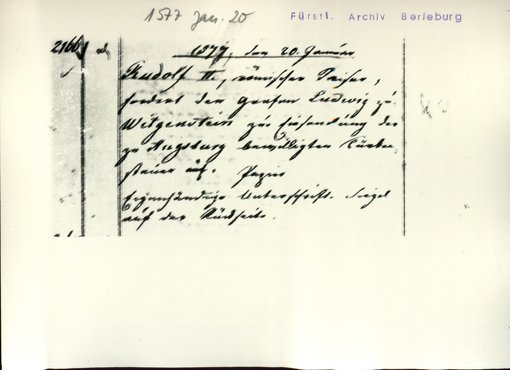 1577 Jan. 20
Fürstl. Archiv Berleburg
2166
1577, den 20. Januar
Rudolf II., römischer Kaiser,
fordert den Grafen Ludwig zu
Witgenstein zur Einsendung der
zu Augsburg bewilligten Türken-
steuer auf. Papier
Eigenhändige Unterschrift. Siegel
auf der Rückseite.